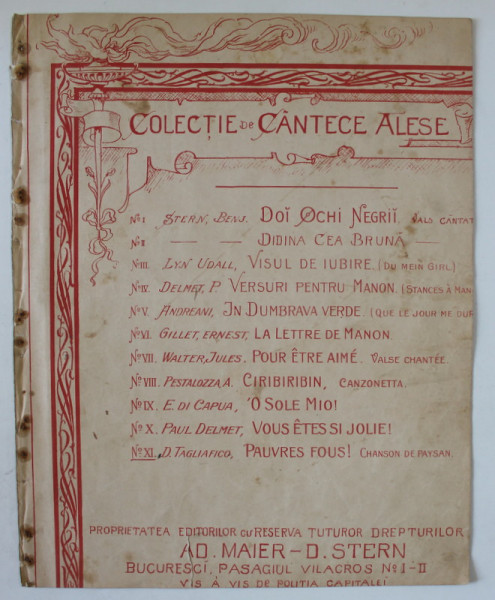 COLECȚIE DE CÂNTECE ALESE
No I STERN, BENJ. DOĬ OCHI NEGRIĬ. VALS CÂNTAT
No II — — DIDINA CEA BRUNĂ —
No III. LYN UDALL, VISUL DE IUBIRE. (DU MEIN GIRL)
No IV. DELMET, P. VERSURI PENTRU MANON. (STANCES À MAN
No V. ANDREANI, IN DUMBRAVA VERDE. (QUE LE JOUR ME DUR
No VI. GILLET, ERNEST, LA LETTRE DE MANON.
No VII. WALTER, JULES. POUR ÊTRE AIMÉ. VALSE CHANTÉE.
No VIII. PESTALOZZA, A. CIRIBIRIBIN, CANZONETTA.
No IX. E. DI CAPUA, 'O SOLE MIO!
No X. PAUL DELMET, VOUS ÊTES SI JOLIE!
No XI. D. TAGLIAFICO, PAUVRES FOUS! CHANSON DE PAYSAN.
PROPRIETATEA EDITORILOR CU RESERVA TUTUROR DREPTURILOR
AD. MAIER – D. STERN
BUCURESCĬ, PASAGIUL VILACROS No I–II
VIS À VIS DE POLITIA CAPITALEĬ